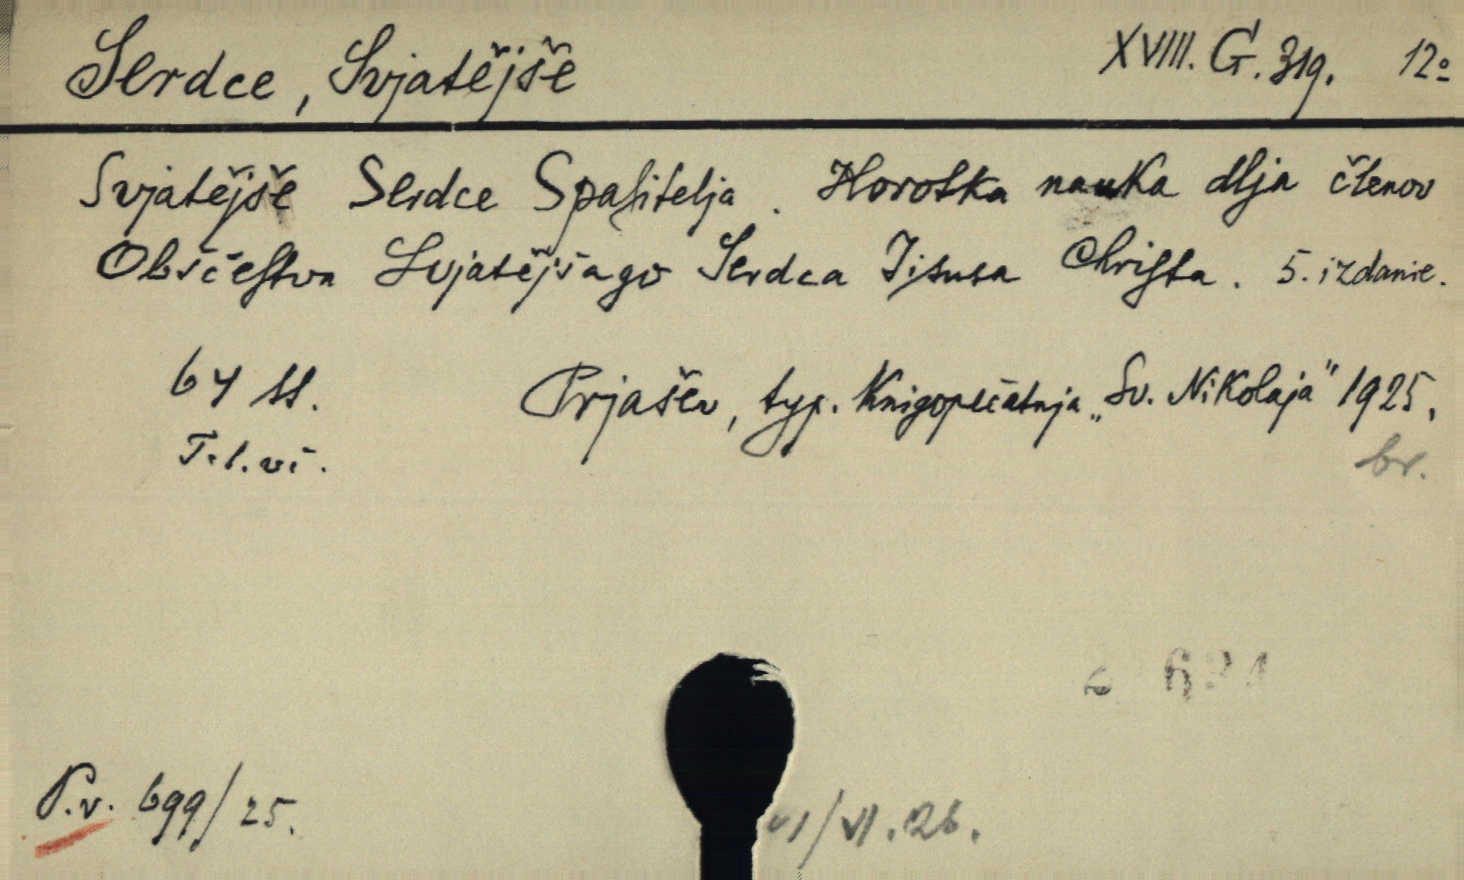 Serdce, Svjatějše XVIII. G. 319. 12º
Svjatějše Serdce Spasitelja. Horotka nauka dlja členov
Obščestva Svjatějšago Serdca Jisusa Christa. 5. izdanie.
64 ss. Prjašev, typ. Knigopečatnja „Sv. Nikolaja" 1925.
br.
P.v. 699/25.
/VI.26.